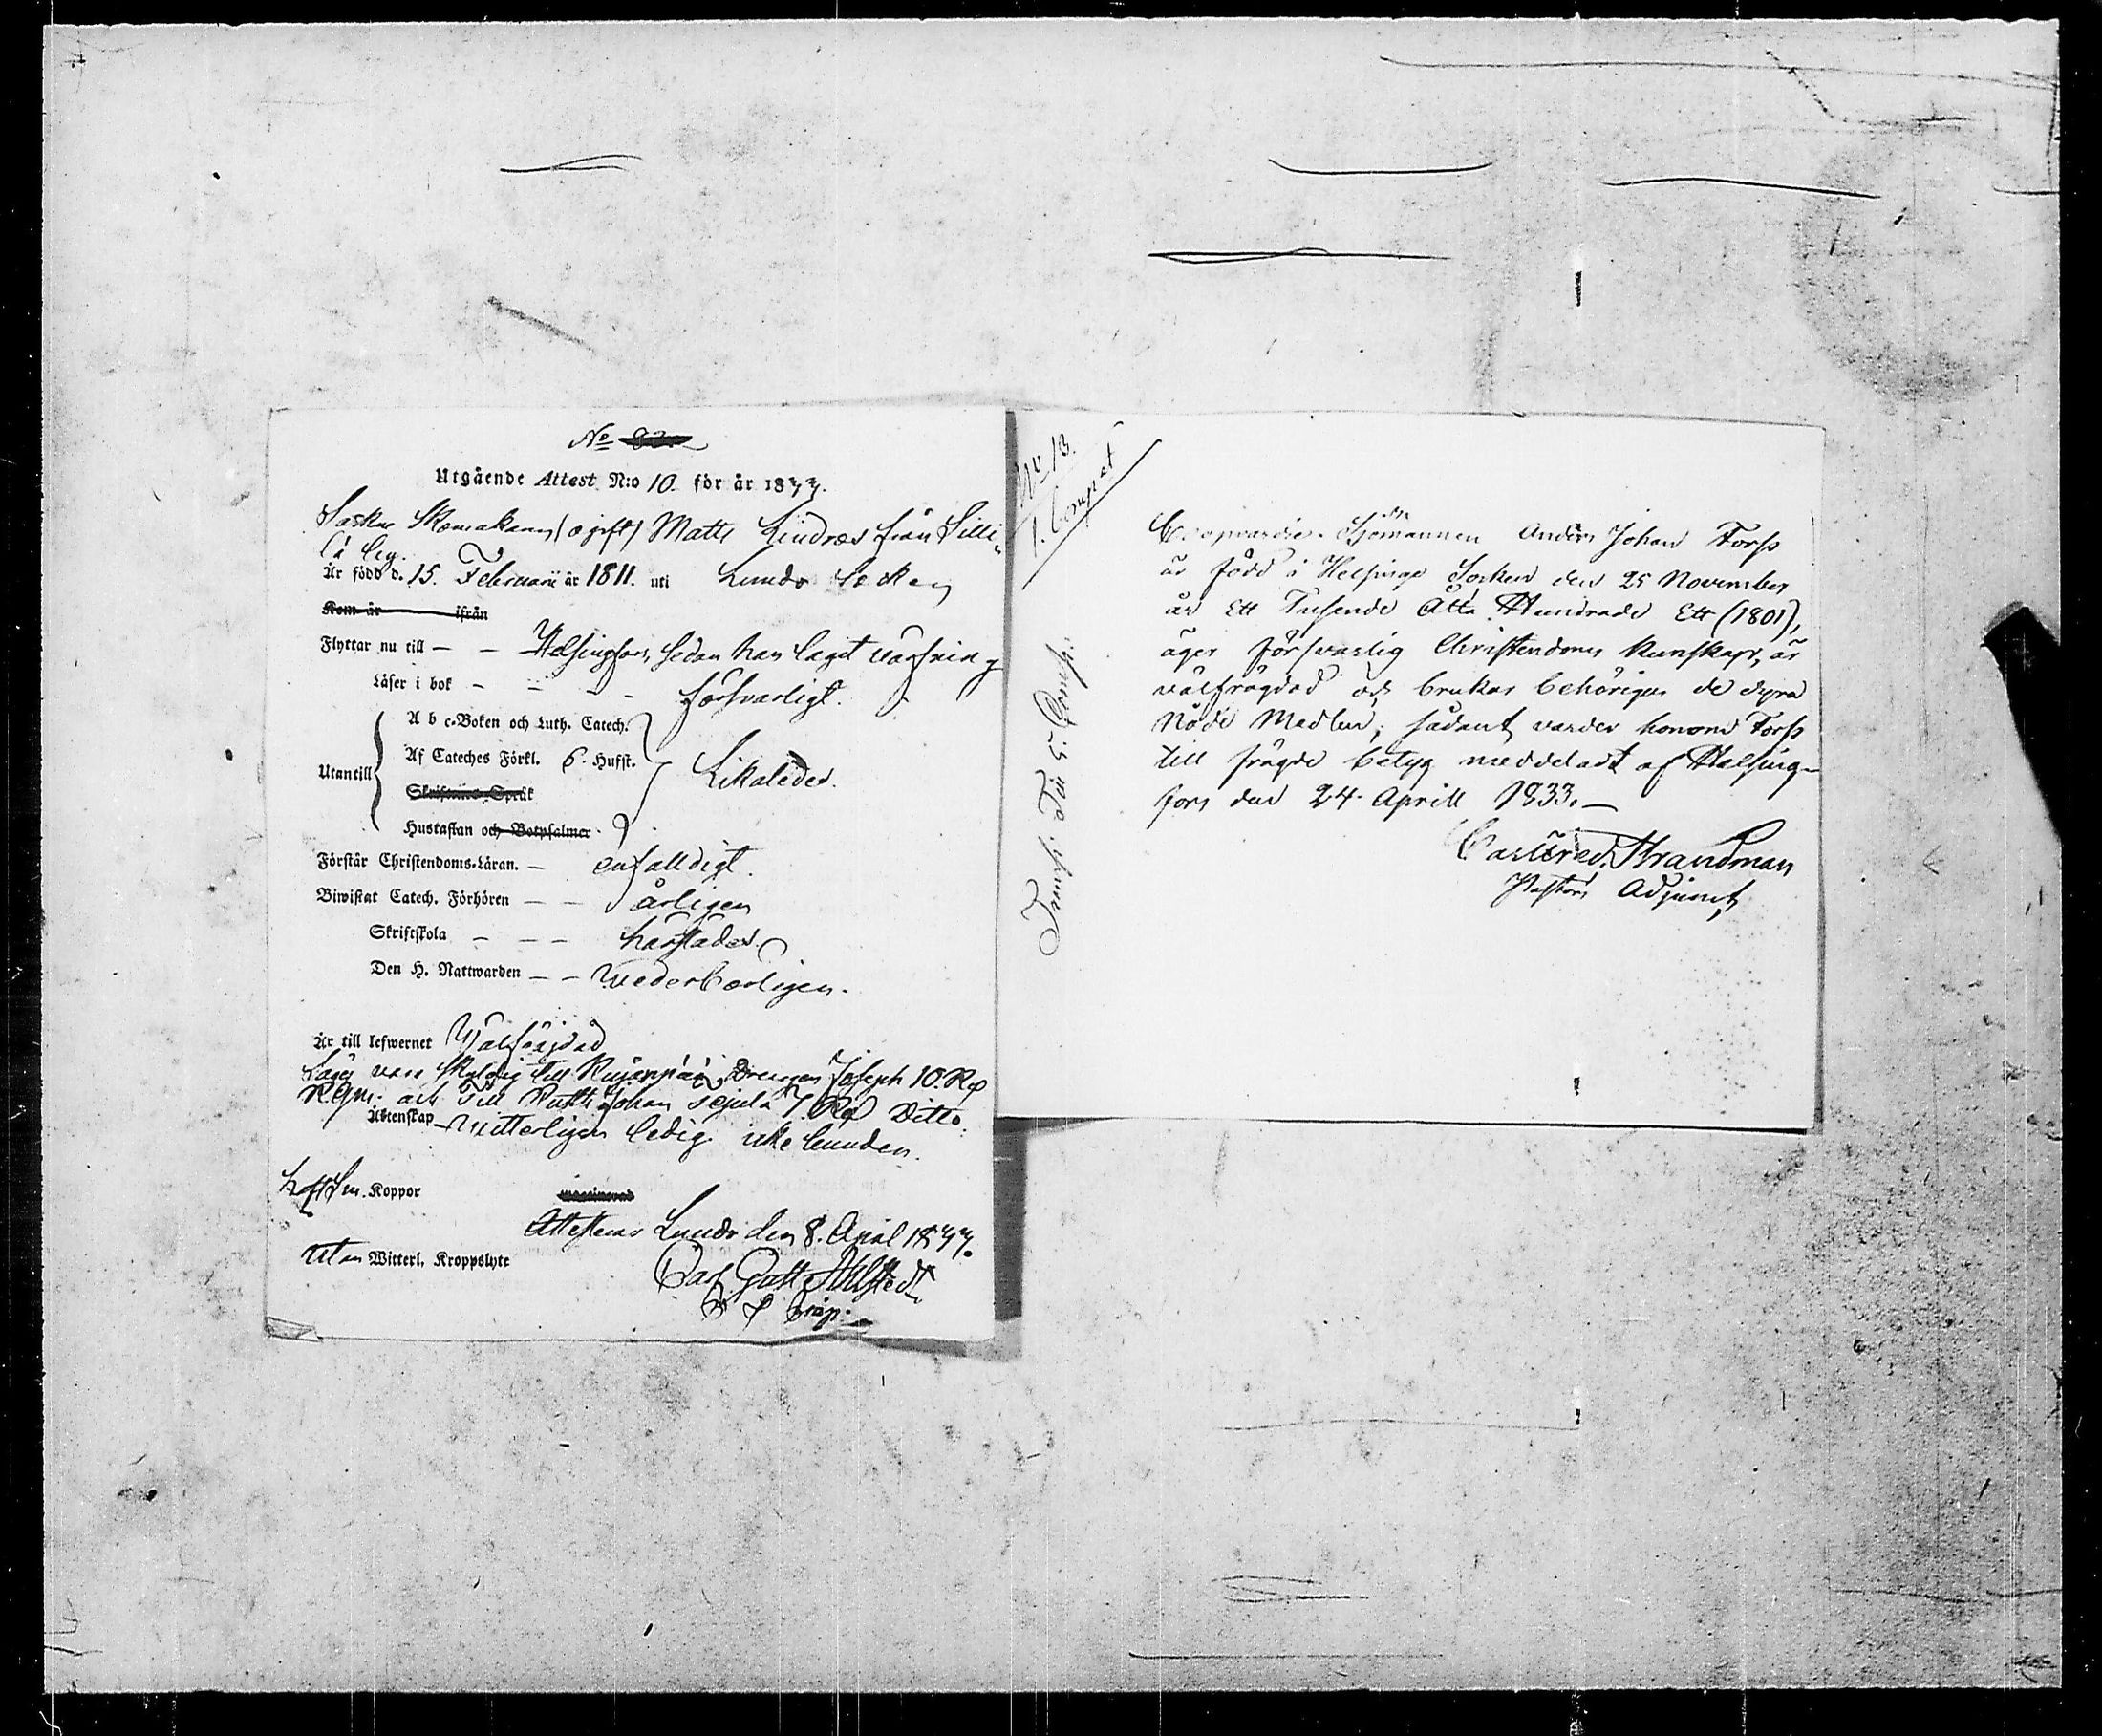 No
Utgående Attest N:o 10. för år 1833.
Sockne Skomakaren (ogift) Matts Lindroos från Silli-
lä by.
Är född d. 15. Februarii år 1811. uti Lundo Socken
Kom år ifrån
Flyttar nu till — — Helsingfors, sedan han laget
Läser i bok - - - - försvarligt.
Utantill
A b c-Boken och Luth. Catech.
Af Cateches Förkl. 6. Hufst. Likaledes.
Skriftenes Språk
Hustaflan och Botpsalmer
Förstår Christendoms-Läran. — enfalldigt.
Biwistat Catech. Förhören — — årligen
Skriftskola - — — härstädes.
Den H. Nattwarden — — wederbörligen.
Är till lefwernet Wälfrägdad
Säges vara skyldig till Drengen Joseph 10. R
och till Johan 7. R Ditto.
Äktenskap witterligen ledig icke bunden.
haft Sm. Koppor
vaccinerad
Attesteras Lundo den 8. April 1833.
utan Witterl. Kroppslyte
Carl Gust. Ahlstedt
No 13.
1. Compet
Coopvardie-Sjömannen Anders Johan Forss
är född i Helsinge Socken den 25 November
år Ett Tusende Åtta Hundrade Ett (1801),
äger försvarlig Christendoms kunskap, är
välfrägdad och brukar behörigen de dyra
Nåde Medlen; sådant varder honom Forss
till frägde betyg meddeladt af Helsing-
fors den 24. Aprill 1833. —
Carl Fred. Strandman
Pastors Adjunct